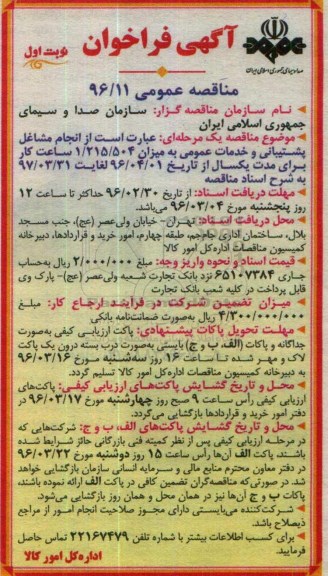 آگهی فراخوان
نوبت اول
صدا و سیمای جمهوری اسلامی ایران
مناقصه عمومی ۹۶/۱۱
نام سازمان مناقصه گزار: سازمان صدا و سیمای
جمهوری اسلامی ایران
موضوع مناقصه یک مرحله‌ای: عبارت است از انجام مشاغل
پشتیبانی و خدمات عمومی به میزان ۱/۲۱۵/۵۰۴ ساعت کار
برای مدت یکسال از تاریخ ۹۶/۰۴/۰۱ لغایت ۹۷/۰۳/۳۱
به شرح اسناد مناقصه
مهلت دریافت اسناد: از تاریخ ۹۶/۰۲/۳۰ حداکثر تا ساعت ۱۲
روز پنجشنبه مورخ ۹۶/۰۳/۰۴ می‌باشد.
محل دریافت اسناد: تهران - خیابان ولی‌عصر (عج)، جنب مسجد
بلال، ساختمان اداری جام‌جم، طبقه چهارم، امور خرید و قراردادها، دبیرخانه
کمیسیون مناقصات اداره‌کل امور کالا
قیمت اسناد و نحوه واریز وجه: مبلغ ۲/۰۰۰/۰۰۰ ریال به‌حساب
جاری ۶۵۱۰۷۳۸۴ نزد بانک تجارت شعبه ولی‌عصر (عج)- پارک وی
قابل پرداخت در کلیه شعب بانک تجارت
میزان تضمین شرکت در فرآیند ارجاع کار: مبلغ
۴/۳۰۰/۰۰۰/۰۰۰ ریال به‌صورت ضمانت‌نامه بانکی
مهلت تحویل پاکات پیشنهادی: پاکت ارزیابی کیفی به‌صورت
جداگانه و پاکات (الف، ب و ج) بایستی به‌صورت درب بسته درون یک پاکت
لاک و مهر شده تا ساعت ۱۶ روز سه‌شنبه مورخ ۹۶/۰۳/۱۶
به دبیرخانه کمیسیون مناقصات اداره‌کل امور کالا تسلیم گردد.
محل و تاریخ گشایش پاکت‌های ارزیابی کیفی: پاکت‌های
ارزیابی کیفی رأس ساعت ۹ صبح روز چهارشنبه مورخ ۹۶/۰۳/۱۷ در
دفتر امور خرید و قراردادها بازگشایی می‌گردد.
محل و تاریخ گشایش پاکت‌های الف، ب و ج: شرکت‌هایی که
در مرحله ارزیابی کیفی پس از نظر کمیته فنی بازرگانی حائز شرایط شده
باشند، پاکت الف آن‌ها رأس ساعت ۱۵ روز دوشنبه مورخ ۹۶/۰۳/۲۲
در دفتر معاون محترم منابع مالی و سرمایه انسانی سازمان بازگشایی خواهد
شد. در صورتی‌که مناقصه‌گران تضمین کافی در پاکت الف ارائه نموده باشند،
پاکات ب و ج آن‌ها نیز در همان محل و همان روز بازگشایی می‌شود.
شرکت‌کننده می‌بایستی دارای مجوز صلاحیت انجام امور از مراجع
ذیصلاح باشد.
برای کسب اطلاعات بیشتر با شماره تلفن ۲۲۱۶۷۴۷۹ تماس حاصل
فرمایید.
اداره‌کل امور کالا